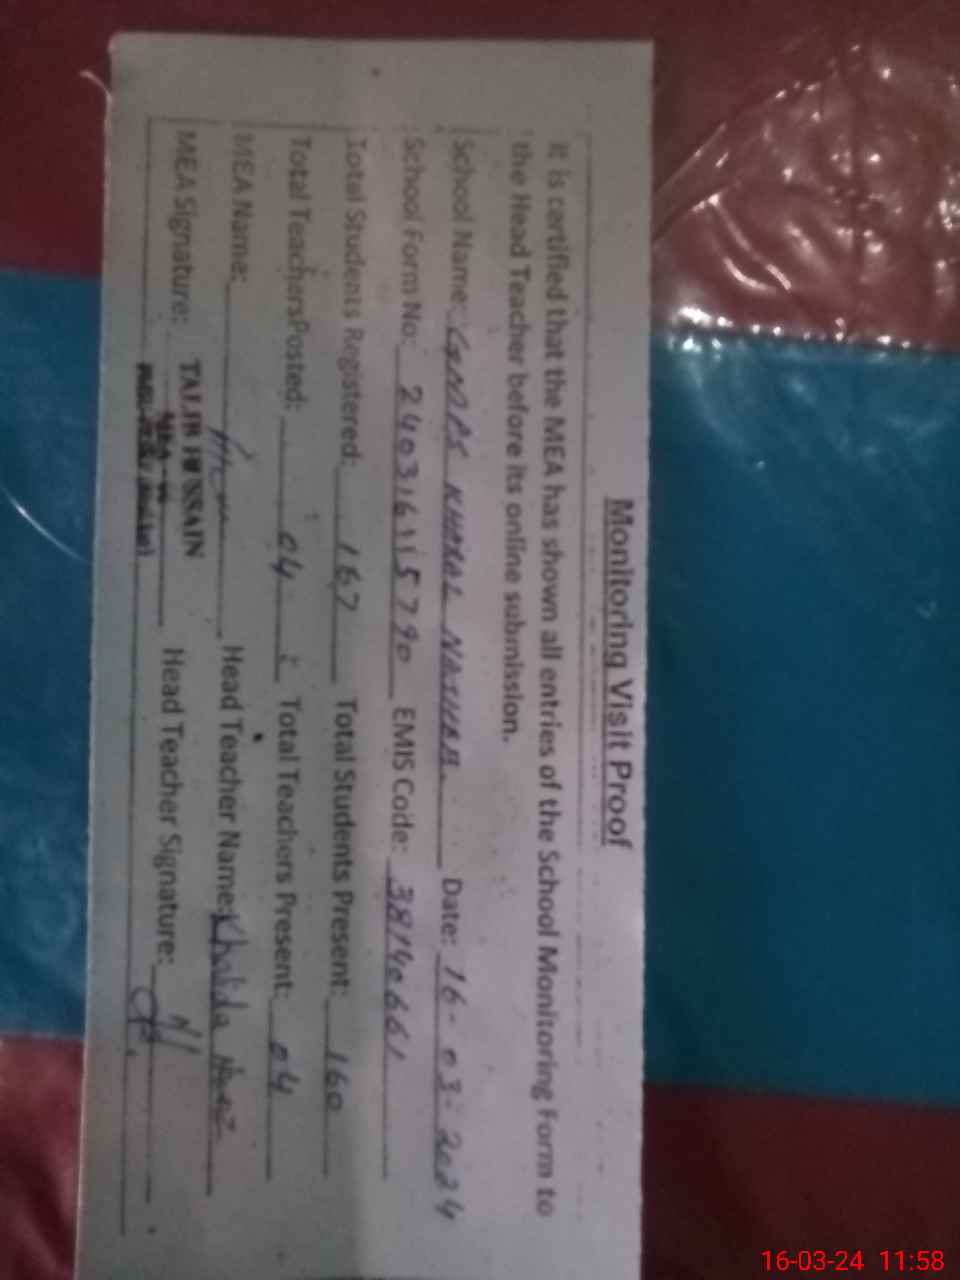 Monitoring Visit Proof
It is certified that the MEA has shown all entries of the School Monitoring Form to
the Head Teacher before its online submission.
School Name: GMPS KHARAL Date: 16-03-2024
School Form No: 240316115790 EMIS Code: 38140661
Total Students Registered: 167 Total Students Present: 160
Total TeachersPosted: 04 Total Teachers Present: 04
MEA Name: Head Teacher Name: Khalida
MEA Signature: TALIB HUSSAIN Head Teacher Signature:
16-03-24 11:58